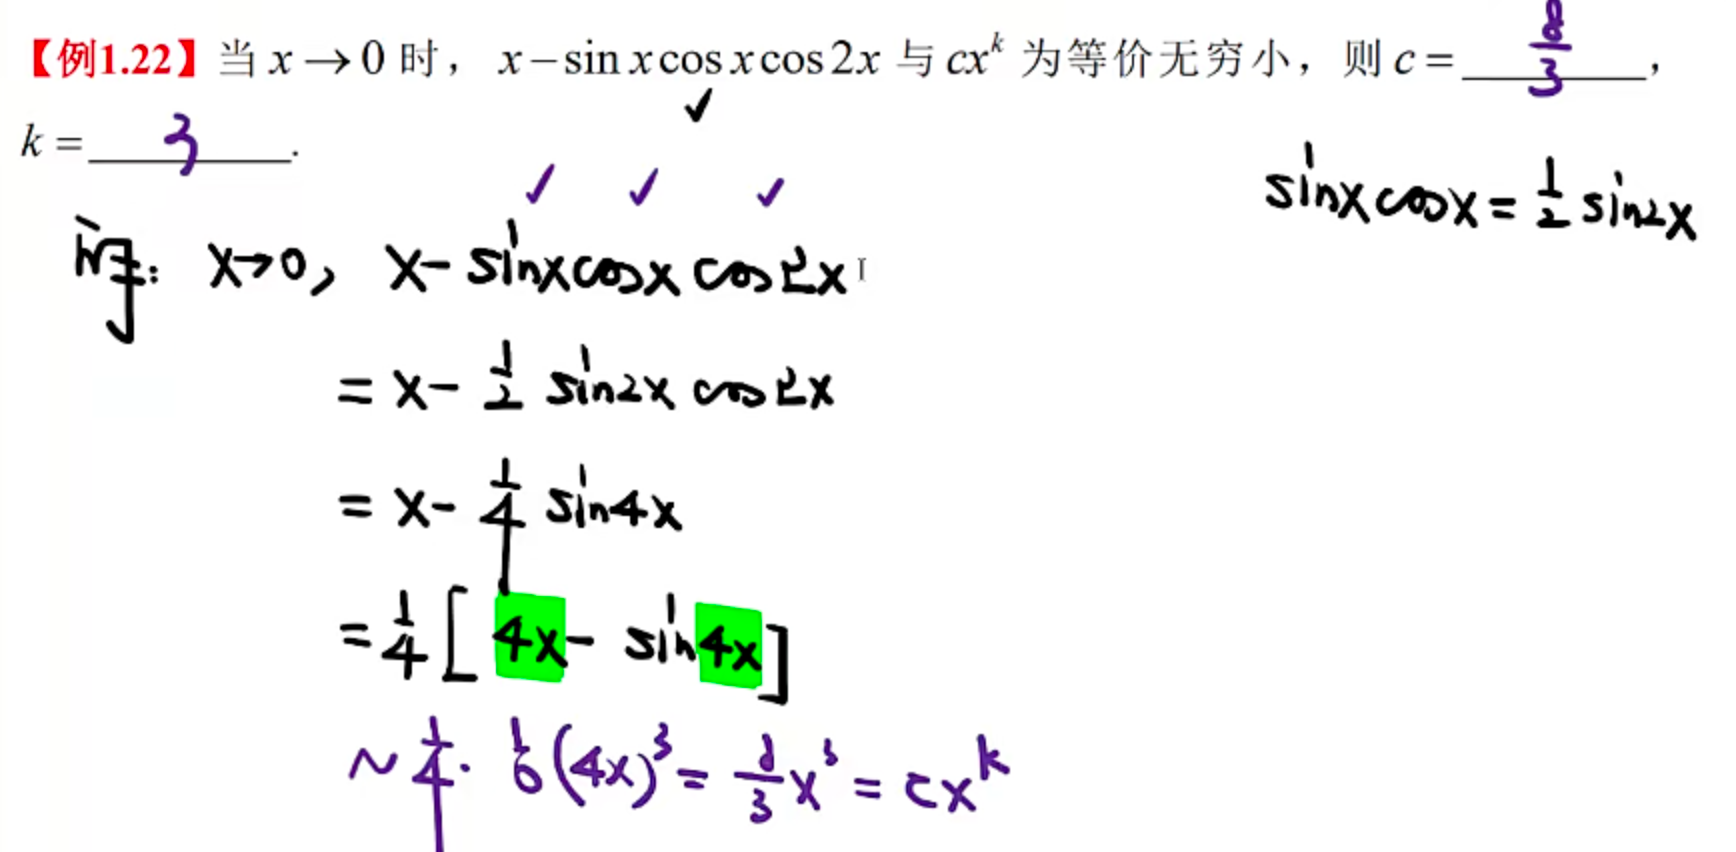 【例1.22】当 x → 0 时， x − sin x cos x cos 2x 与 cx^k 为等价无穷小，则 c = 8/3 ，
k = 3 .
sinx cosx = 1/2 sin2x
解： x→0， x − sinx cosx cos2x
= x − 1/2 sin2x cos2x
= x − 1/4 sin4x
= 1/4 [ 4x − sin4x ]
~ 1/4 · 1/6 (4x)^3 = 8/3 x^3 = cx^k